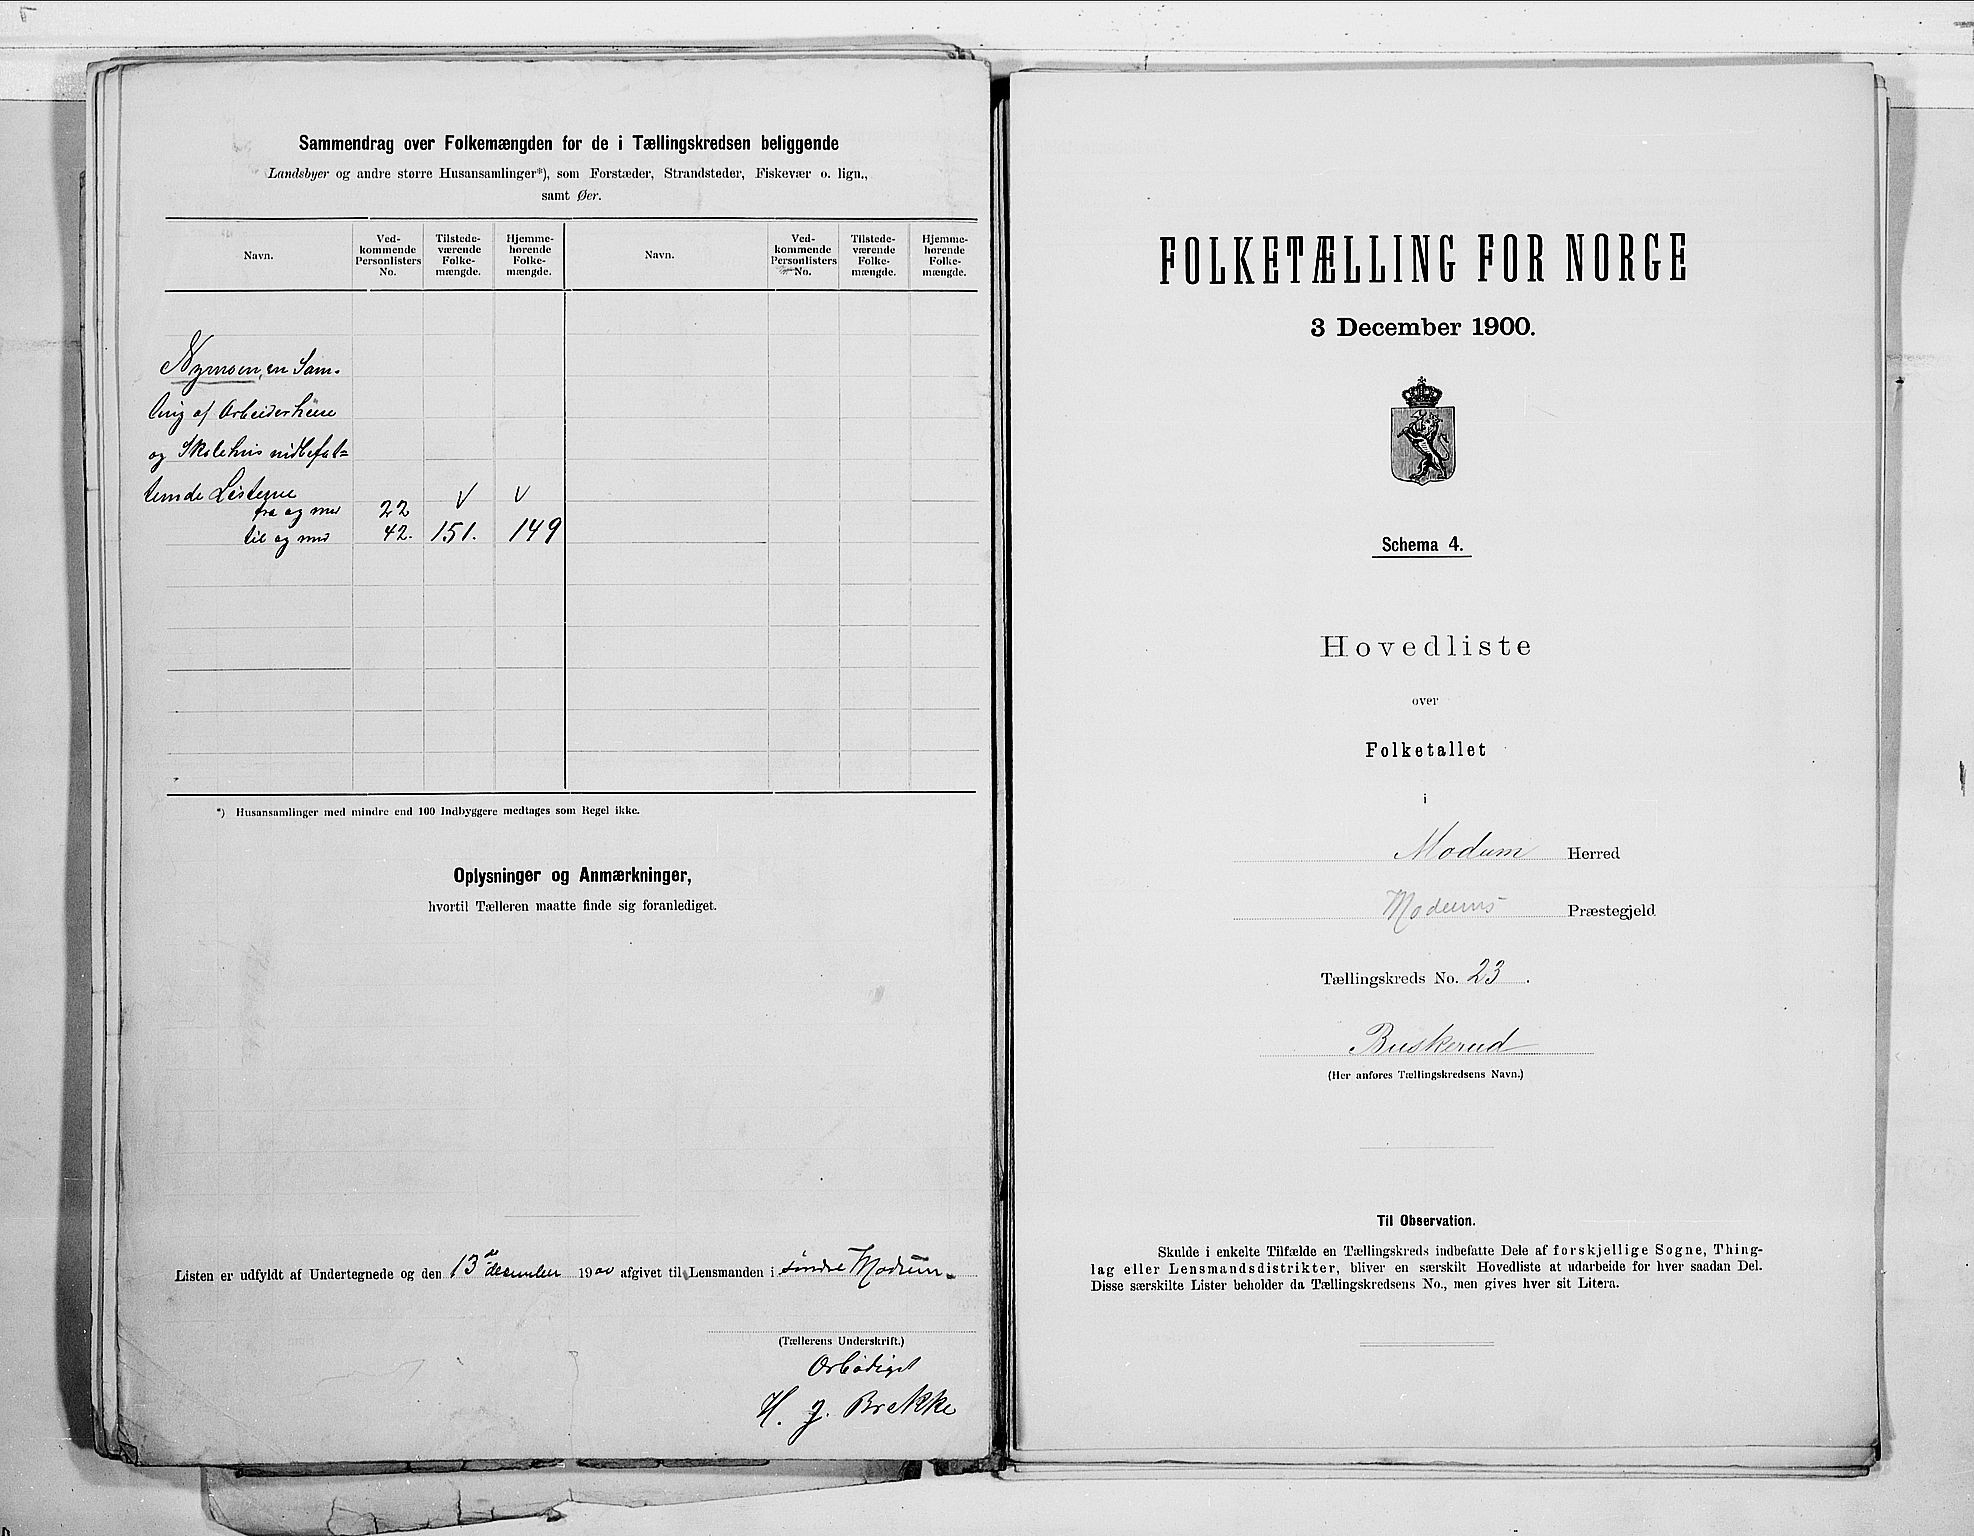 Sammendrag over Folkemængden for de i Tællingskredsen beliggende
Landsbyer og andre større Husansamlinger*), som Forstæder, Strandsteder, Fiskevær o. lign.,
samt Øer.
Navn. Ved-kommende Personlisters No. Tilstede-værende Folke-mængde. Hjemme-hørende Folke-mængde. Navn. Ved-kommende Personlisters No. Tilstede-værende Folke-mængde. Hjemme-hørende Folke-mængde.
Nymoen, en Sam-
ling af Arbeiderhuse
og Skolehus indbefat=
tende Listerne V V
fra og med 22
til og med 42. 151. 149
*) Husansamlinger med mindre end 100 Indbyggere medtages som Regel ikke.
Oplysninger og Anmærkninger,
hvortil Tælleren maatte finde sig foranlediget.
Listen er udfyldt af Undertegnede og den 13de december 1900 afgivet til Lensmanden i søndre Modum.
(Tællerens Underskrift.)
Ærbødigst
H. J. Brekke
FOLKETÆLLING FOR NORGE
3 December 1900.
Schema 4.
Hovedliste
over
Folketallet
i
Modum Herred
Modums Præstegjeld
Tællingskreds No. 23.
Buskerud
(Her anføres Tællingskredsens Navn.)
Til Observation.
Skulde i enkelte Tilfælde en Tællingskreds indbefatte Dele af forskjellige Sogne, Thing-
lag eller Lensmandsdistrikter, bliver en særskilt Hovedliste at udarbeide for hver saadan Del.
Disse særskilte Lister beholder da Tællingskredsens No., men gives hver sit Litera.